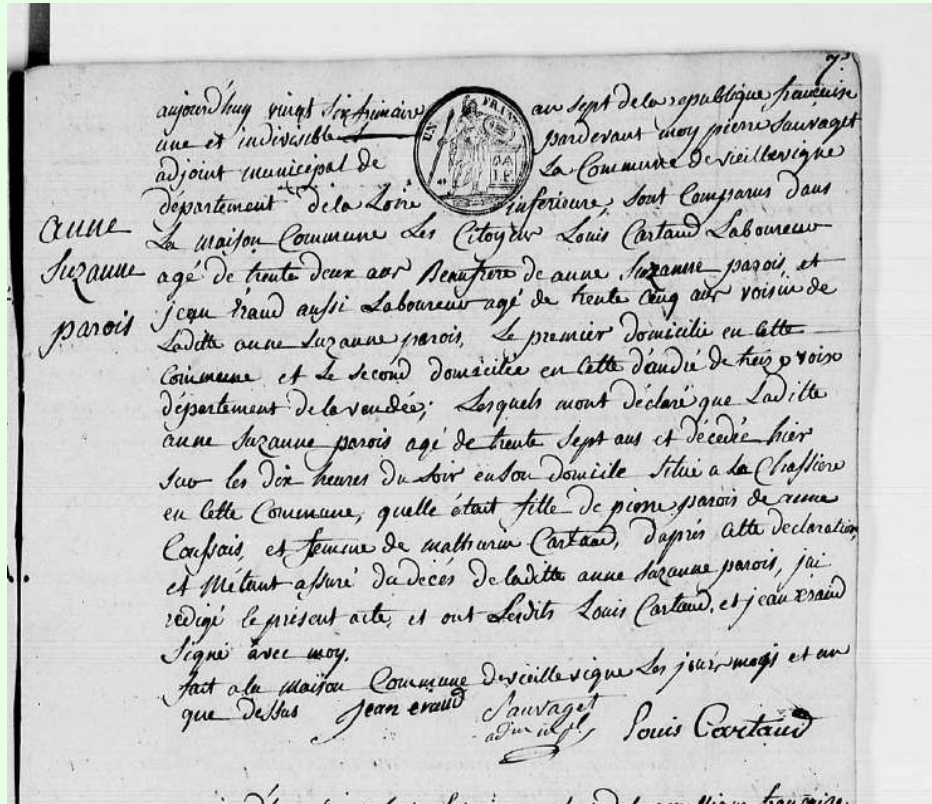 7.
aujourd'huy vingt six frimaire an sept de la republique francaise
une et indivisible pardevant moy pierre Sauvaget
adjoint municipal de La Commune de vieillevigne
département de la Loire inferieure, sont Comparus dans
La maison Commune Les Citoyens Louis Cartaud Laboureur
agé de trente deux ans Beaufrere de anne Suzanne parois, et
jean éraud aussi Laboureur agé de trente Cinq ans voisin de
Laditte anne Suzanne parois, Le premier domicilié en Cette
Commune et Le Second domicilié en Cette de
département de la vendée; Lesquels mont déclaré que Laditte
anne Suzanne parois agé de trente Sept ans et décedée hier
Sur les dix heures du Soir en son domicile Situé a La Chassiere
en Cette Commune, quelle était fille de pierre parois de anne
et femme de mathurin Cartaud, d'aprés Cette declaration,
et Métant assuré du decés de laditte anne Suzanne parois, jai
redigé le présent acte, et ont Lesdits Louis Cartaud, et jean éraud
Signé avec moy.
fait a la maison Commune de vieillevigne Les jour mois et an
que dessus jean eraud Sauvaget Louis Cartaud
anne
Suzanne
parois
UN FRANC